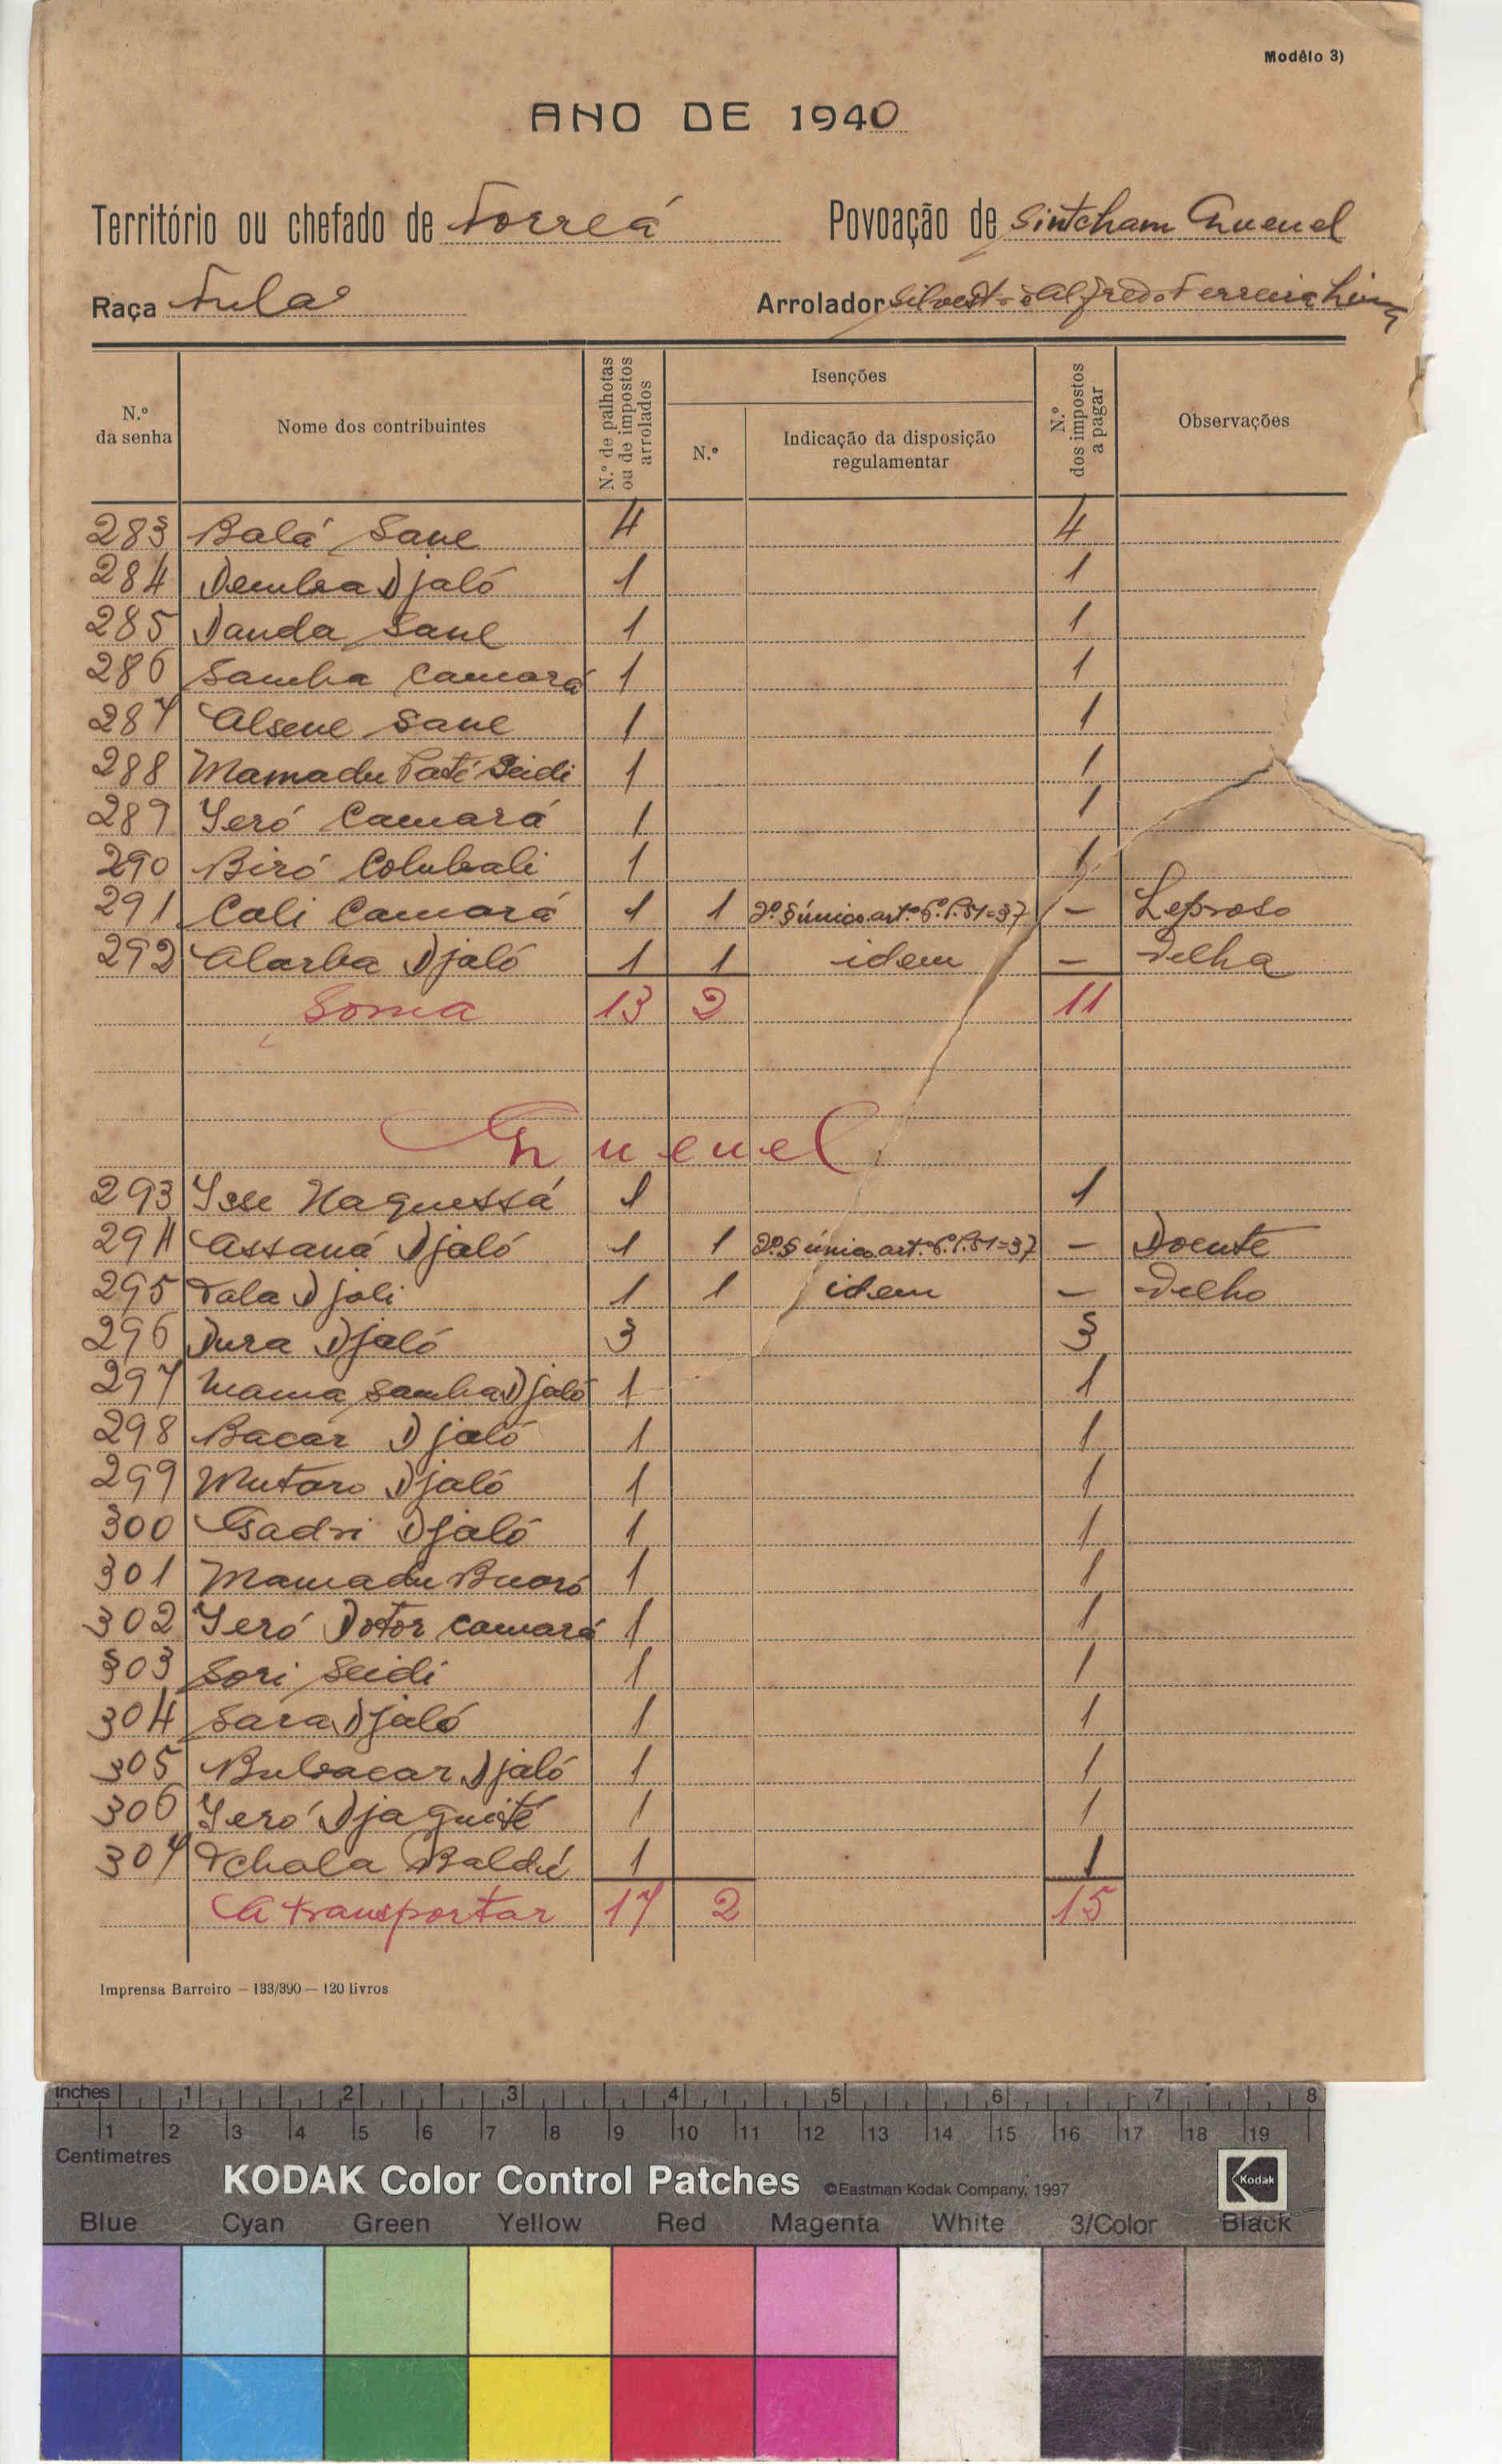 Modêlo 3)
ANO DE 1940
Território ou chefado de Forreá Povoação de Sintcham Guenel
Raça Fula Arrolador Silvestre Alfredo Ferreira Lima
N.º da senha
Nome dos contribuintes
N.º de palhotas ou de impostos arrolados
Isenções
N.º
Indicação da disposição regulamentar
N.º dos impostos a pagar
Observações
283 Balá Sane 4 4
284 Demba Djaló 1 1
285 Dauda Sane 1 1
286 Samba Camará 1 1
287 Alsene Sane 1 1
288 Mamadu Paté Seidi 1 1
289 Yeró Camará 1 1
290 Biró Colubali 1 1
291 Cali Camará 1 1 2º § único art.º 6.º P. 51=37 — Leproso
292 Alarba Djaló 1 1 idem — Velha
Soma 13 2 11
Guenel
293 Isse Naquessá 1 1
294 Assaná Djaló 1 1 2º § único art.º 6.º P. 51=37 — Doente
295 Tala Djoli 1 1 idem — Velho
296 Dura Djaló 3 3
297 Mama Samba Djaló 1 1
298 Bacar Djaló 1 1
299 Mutaro Djaló 1 1
300 Gadri Djaló 1 1
301 Mamadu Buaró 1 1
302 Yeró Dotor Camará 1 1
303 Sori Seidi 1 1
304 Sara Djaló 1 1
305 Bubacar Djaló 1 1
306 Yeró Djaguité 1 1
307 Tchala Baldé 1 1
A transportar 17 2 15
Imprensa Barreiro — 133/390 — 120 livros
inches 1 2 3 4 5 6 7 8
1 2 3 4 5 6 7 8 9 10 11 12 13 14 15 16 17 18 19
Centimetres
KODAK Color Control Patches ©Eastman Kodak Company, 1997 Kodak
Blue Cyan Green Yellow Red Magenta White 3/Color Black